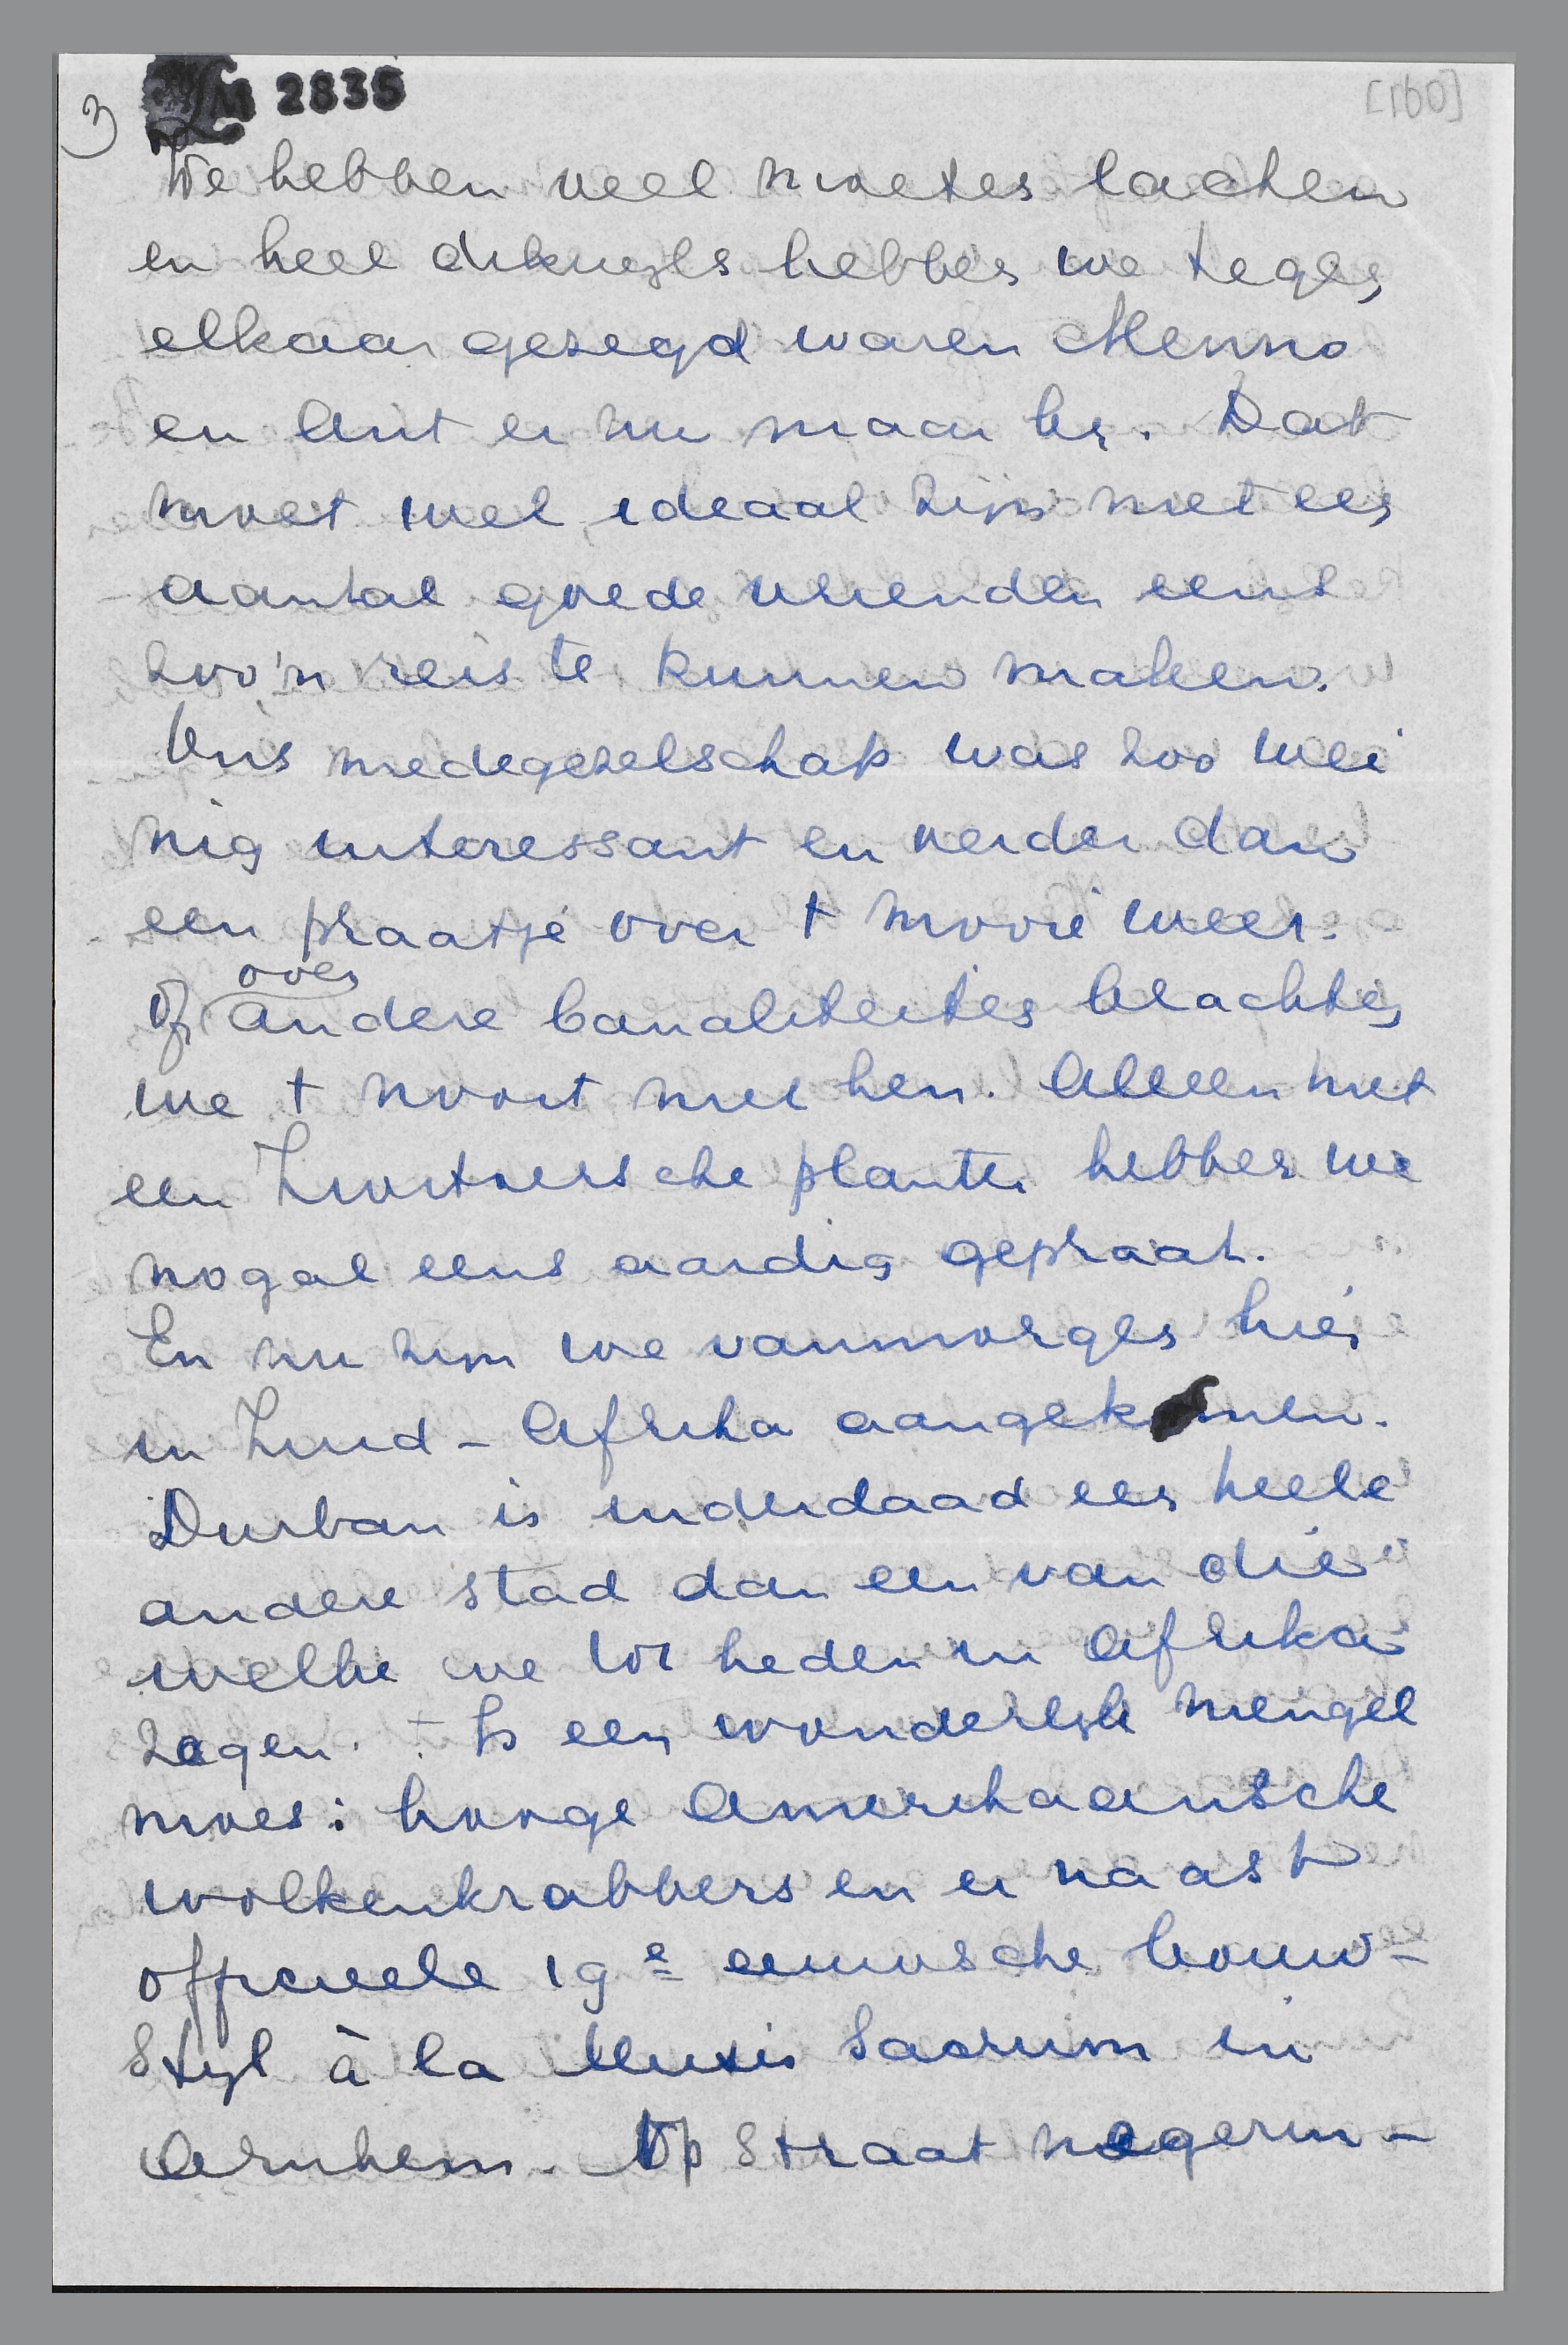 3
LM 2835
[160]
We hebben veel moeten lachen
en heel dikwijls hebben we tegen
elkaar gezegd waren Menno
en Ant er nu maar bij. Dat
moet wel ideaal zijn met een
aantal goede vrienden eens
zoo'n reis te kunnen maken.
Ons medegezelschap was zoo wei
nig interessant en verder dan
een praatje over t mooie weer
of over andere banaliteiten brachten
we t nooit met hen. Alleen met
een Zwitsersche planter hebben we
nogal eens aardig gepraat.
En nu zijn we vanmorgen hier
in Zuid-Afrika aangekomen.
Durban is inderdaad een heele
andere stad dan een van die
welke we tot heden in Afrika
zagen. t Is een wonderlijk mengel
moes: hooge Amerikaansche
wolkenkrabbers en er naast
officieele 19e eeuwsche bouw-
stijl à la Musis Sacrum in
Arnhem. Op straat negerin-